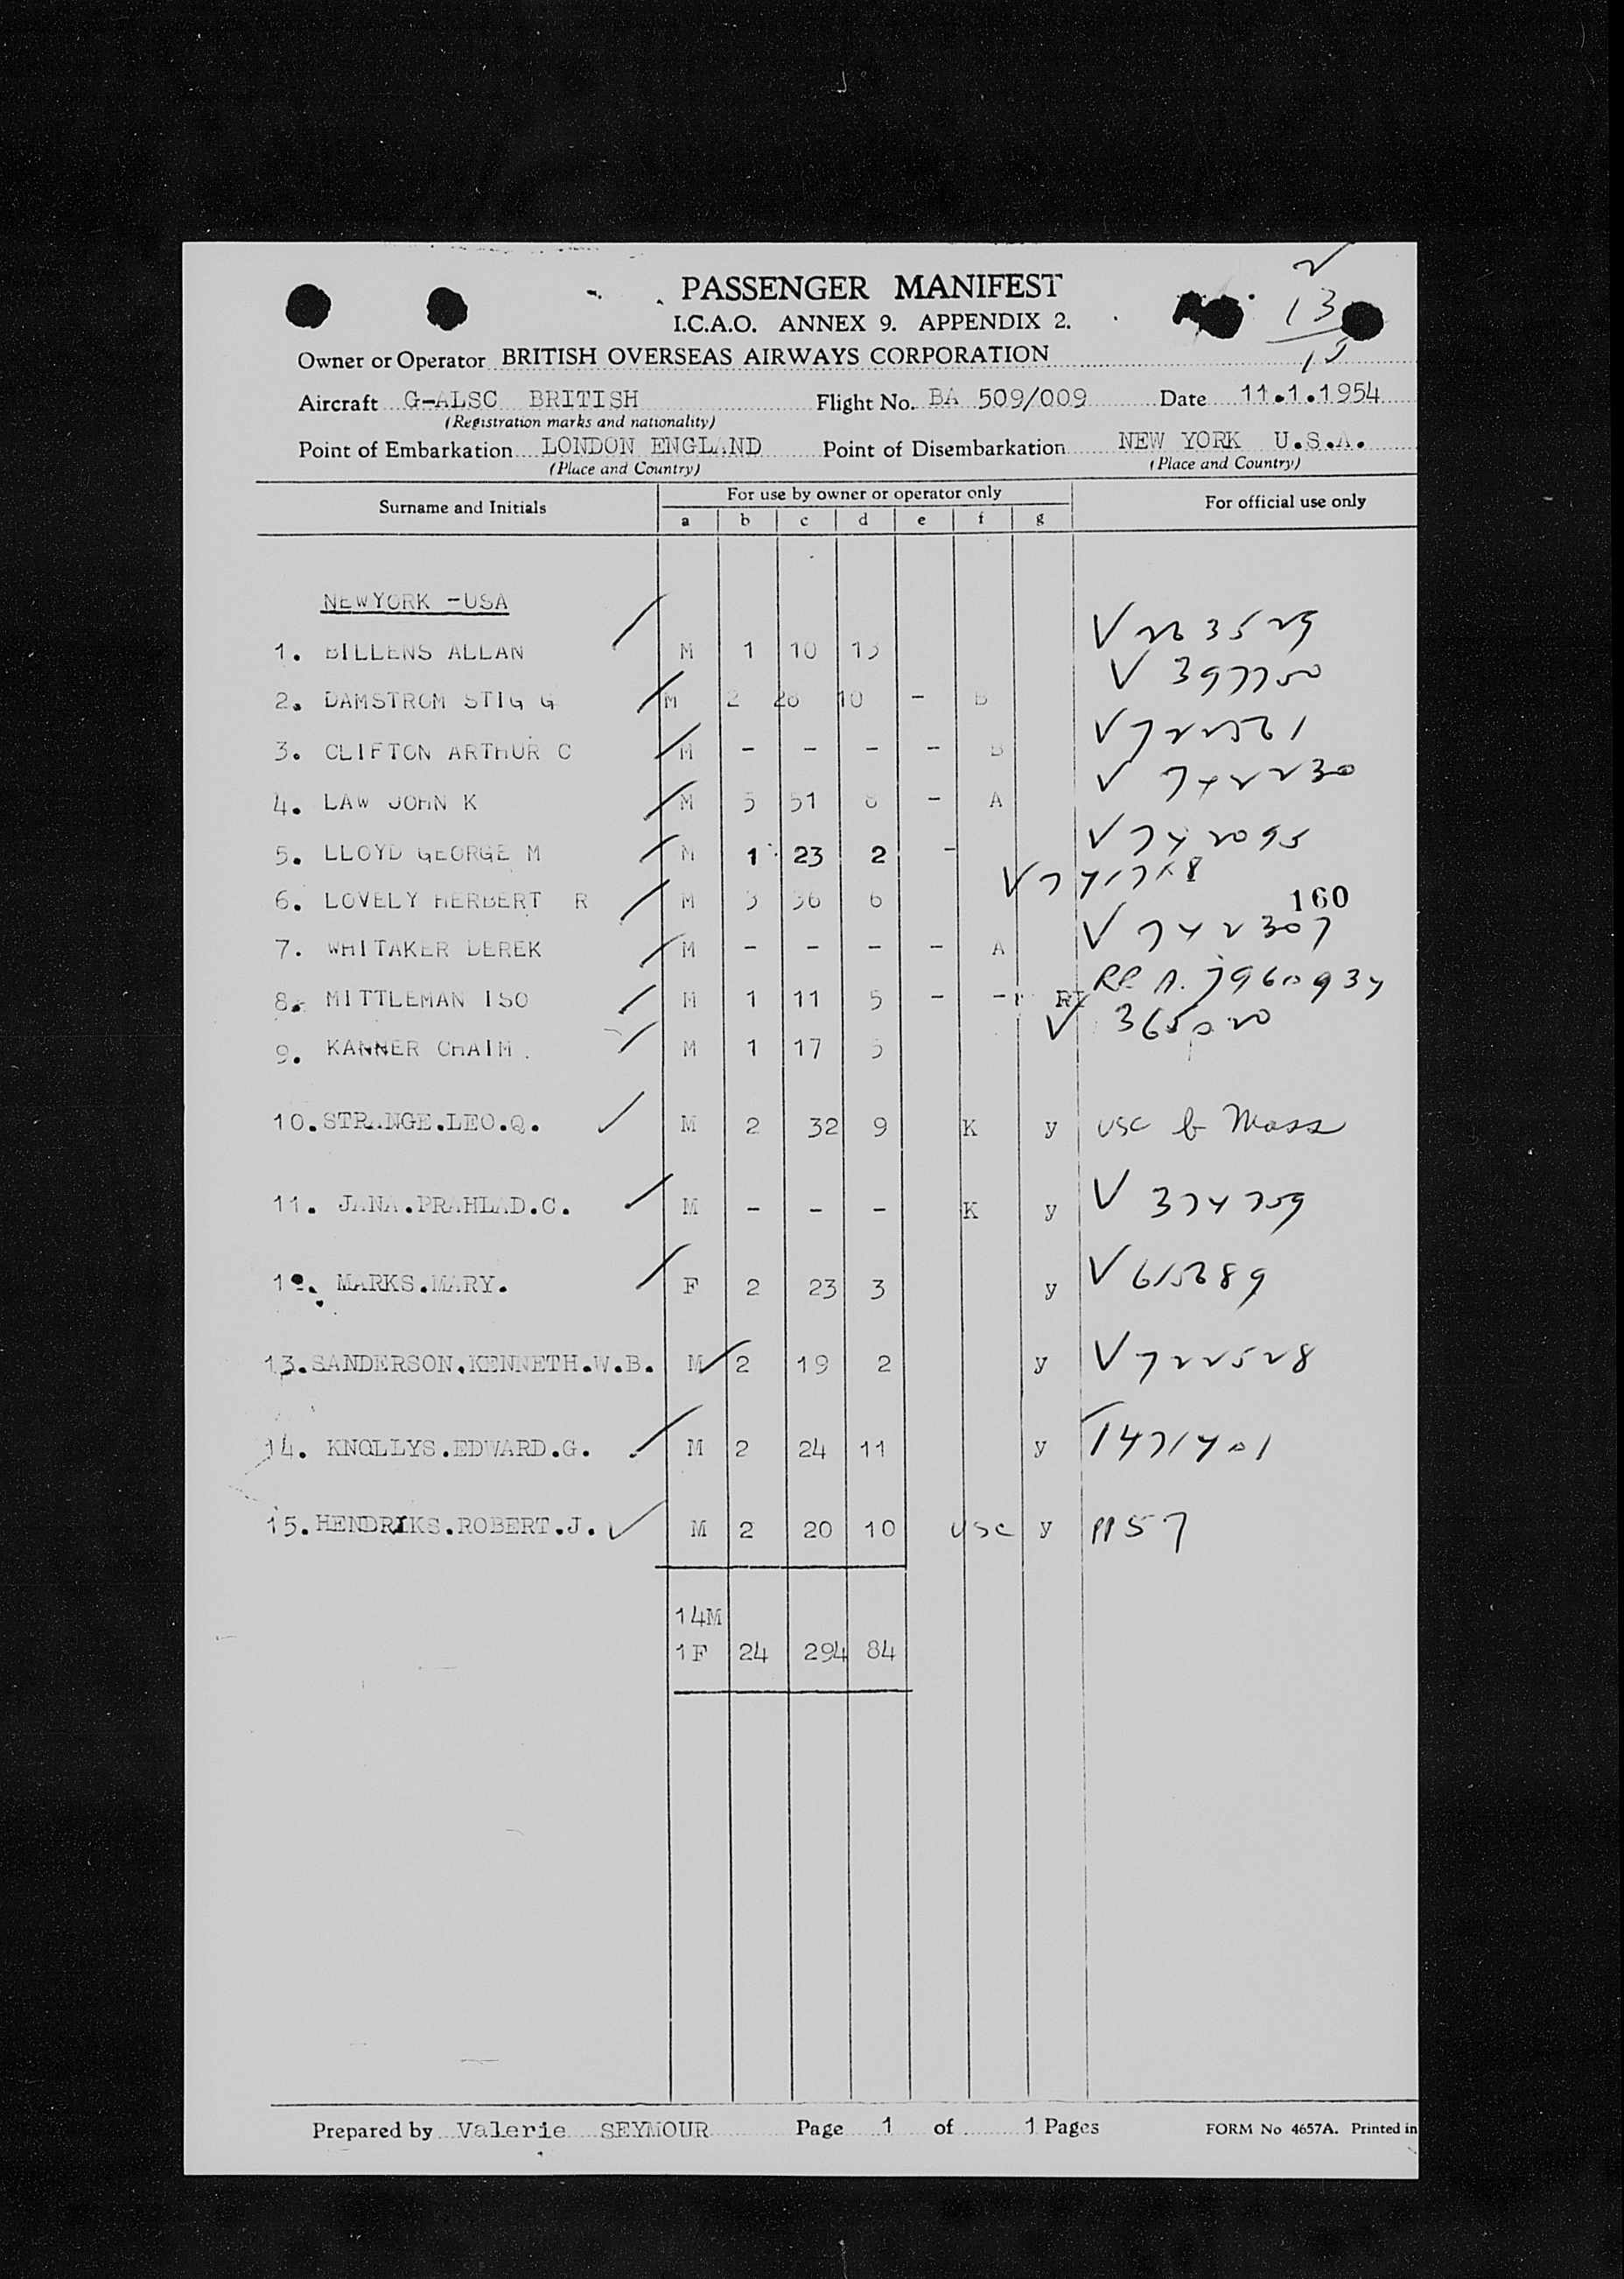 PASSENGER MANIFEST
I.C.A.O. ANNEX 9. APPENDIX 2.
2
13
15
Owner or Operator BRITISH OVERSEAS AIRWAYS CORPORATION
Aircraft G-ALSC BRITISH Flight No. BA 509/009 Date 11.1.1954
(Registration marks and nationality)
Point of Embarkation LONDON ENGLAND Point of Disembarkation NEW YORK U.S.A.
(Place and Country) (Place and Country)
Surname and Initials For use by owner or operator only For official use only
a b c d e f g
NEWYORK -USA
1. BILLENS ALLAN M 1 10 13
2. DAMSTROM STIG G M 2 28 10 - B V 397750
3. CLIFTON ARTHUR C M - - - - B V722561
4. LAW JOHN K M 3 51 8 - A V 742230
5. LLOYD GEORGE M M 1 23 2 - V742095
6. LOVELY HERBERT R M 3 36 6
160
7. WHITAKER DEREK M - - - - A V 742307
8. MITTLEMAN ISO M 1 11 5 - - RE A. 7960934
9. KANNER CHAIM. M 1 17 5 V 365020
10. STRANGE.LEO.Q. M 2 32 9 K y USC b Mass
11. JANA.PRAHLAD.C. M - - - K y V 374759
12. MARKS.MARY. F 2 23 3 y V615689
13. SANDERSON.KENNETH.W.B. M 2 19 2 y V722528
14. KNOLLYS.EDWARD.G. M 2 24 11 y
15. HENDRIKS.ROBERT.J. M 2 20 10 USC y PP57
14M
1F 24 294 84
Prepared by Valerie SEYMOUR Page 1 of 1 Pages FORM No 4657A. Printed in